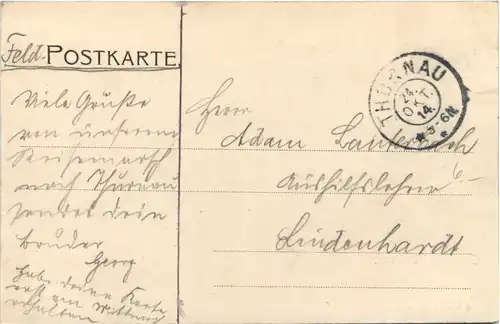 Feld-POSTKARTE.
THURNAU
24.
OKT.
14.
5-6N.
Viele Grüße
von unserem
Reisemarsch
nach Thurnau
sendet dein
bruder
Georg
Habe deine Karte
erst am Mittwoch
erhalten
Herrn
Adam
Aushilfslehrer
Lindenhardt